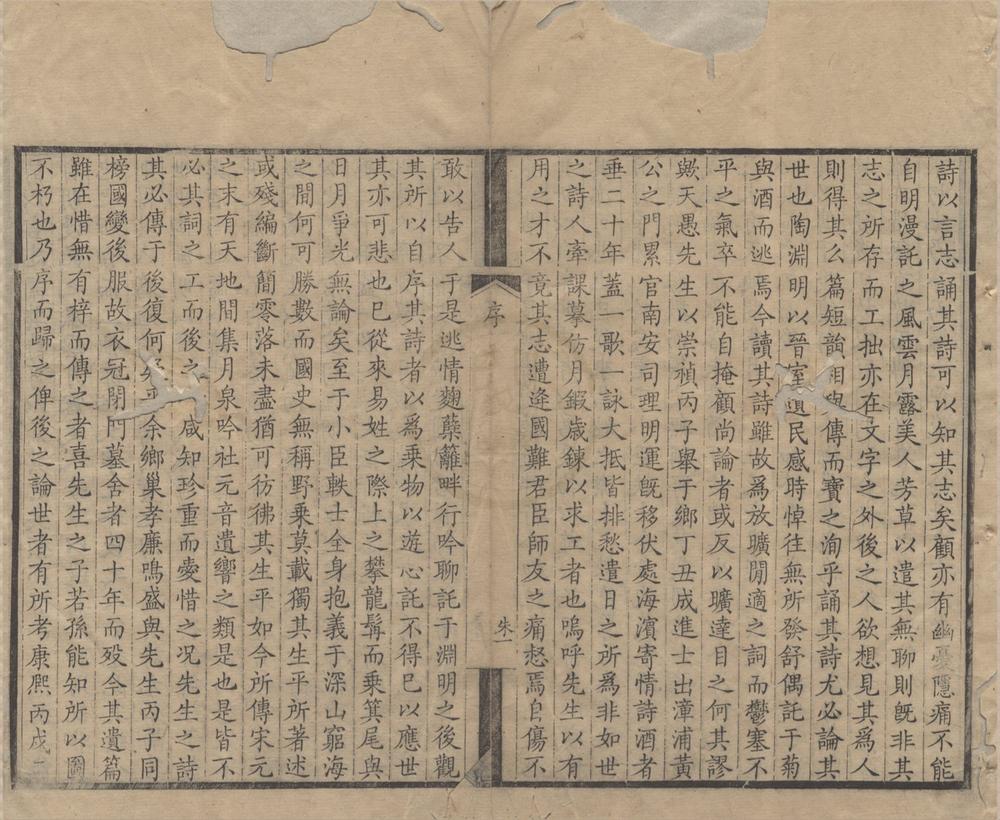 詩以言志誦其詩可以知其志矣顧亦有幽憂隱痛不能
自明漫託之風雲月露美人芳草以遣其無聊則旣非其
志之所存而工拙亦在文字之外後之人欲想見其爲人
則得其么篇短韻相與傳而寶之洵乎誦其詩尤必論其
世也陶淵明以晉室遺民感時悼往無所發舒偶託于菊
與酒而逃焉今讀其詩雖故爲放曠閒適之詞而鬱塞不
平之氣卒不能自掩顧尚論者或反以曠達目之何其謬
歟天愚先生以崇禎丙子舉于鄉丁丑成進士出漳浦黃
公之門累官南安司理明運旣移伏處海濱寄情詩酒者
垂二十年蓋一歌一詠大抵皆排愁遣日之所爲非如世
之詩人牽課摹仿月鍛歲鍊以求工者也嗚呼先生以有
用之才不竟其志遭逢國難君臣師友之痛愁焉自傷不
序
朱一
敢以告人于是逃情麴蘖籬畔行吟聊託于淵明之後觀
其所以自序其詩者以爲乘物以遊心託不得已以應世
其亦可悲也已從來易姓之際上之攀龍髯而乘箕尾與
日月爭光無論矣至于小臣軼士全身抱義于深山窮海
之間何可勝數而國史無稱野乘莫載獨其生平所著述
或殘編斷簡零落未盡猶可彷彿其生平如今所傳宋元
之末有天地間集月泉吟社元音遺響之類是也是皆不
必其詞之工而後之 咸知珍重而愛惜之况先生之詩
其必傳于後復何 乎余鄉巢孝廉鳴盛與先生丙子同
榜國變後服故衣冠閉門墓舍者四十年而歿今其遺篇
雖在惜無有梓而傳之者喜先生之子若孫能知所以圖
不朽也乃序而歸之俾後之論世者有所考康熙丙戌